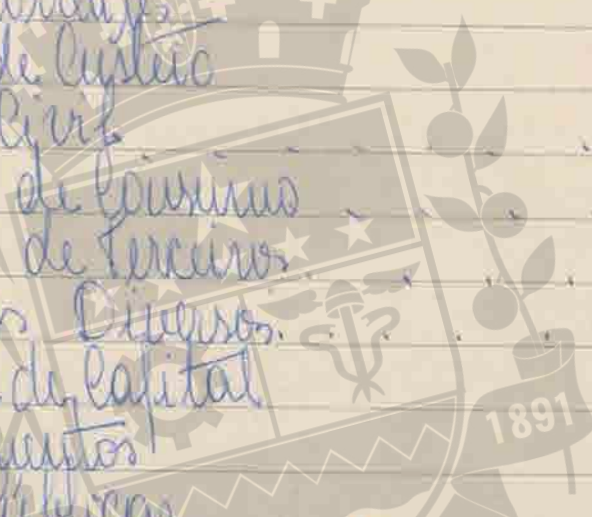 de Custeio
Civil
de Consumo
de Terceiros
Diversos
de Capital
1891